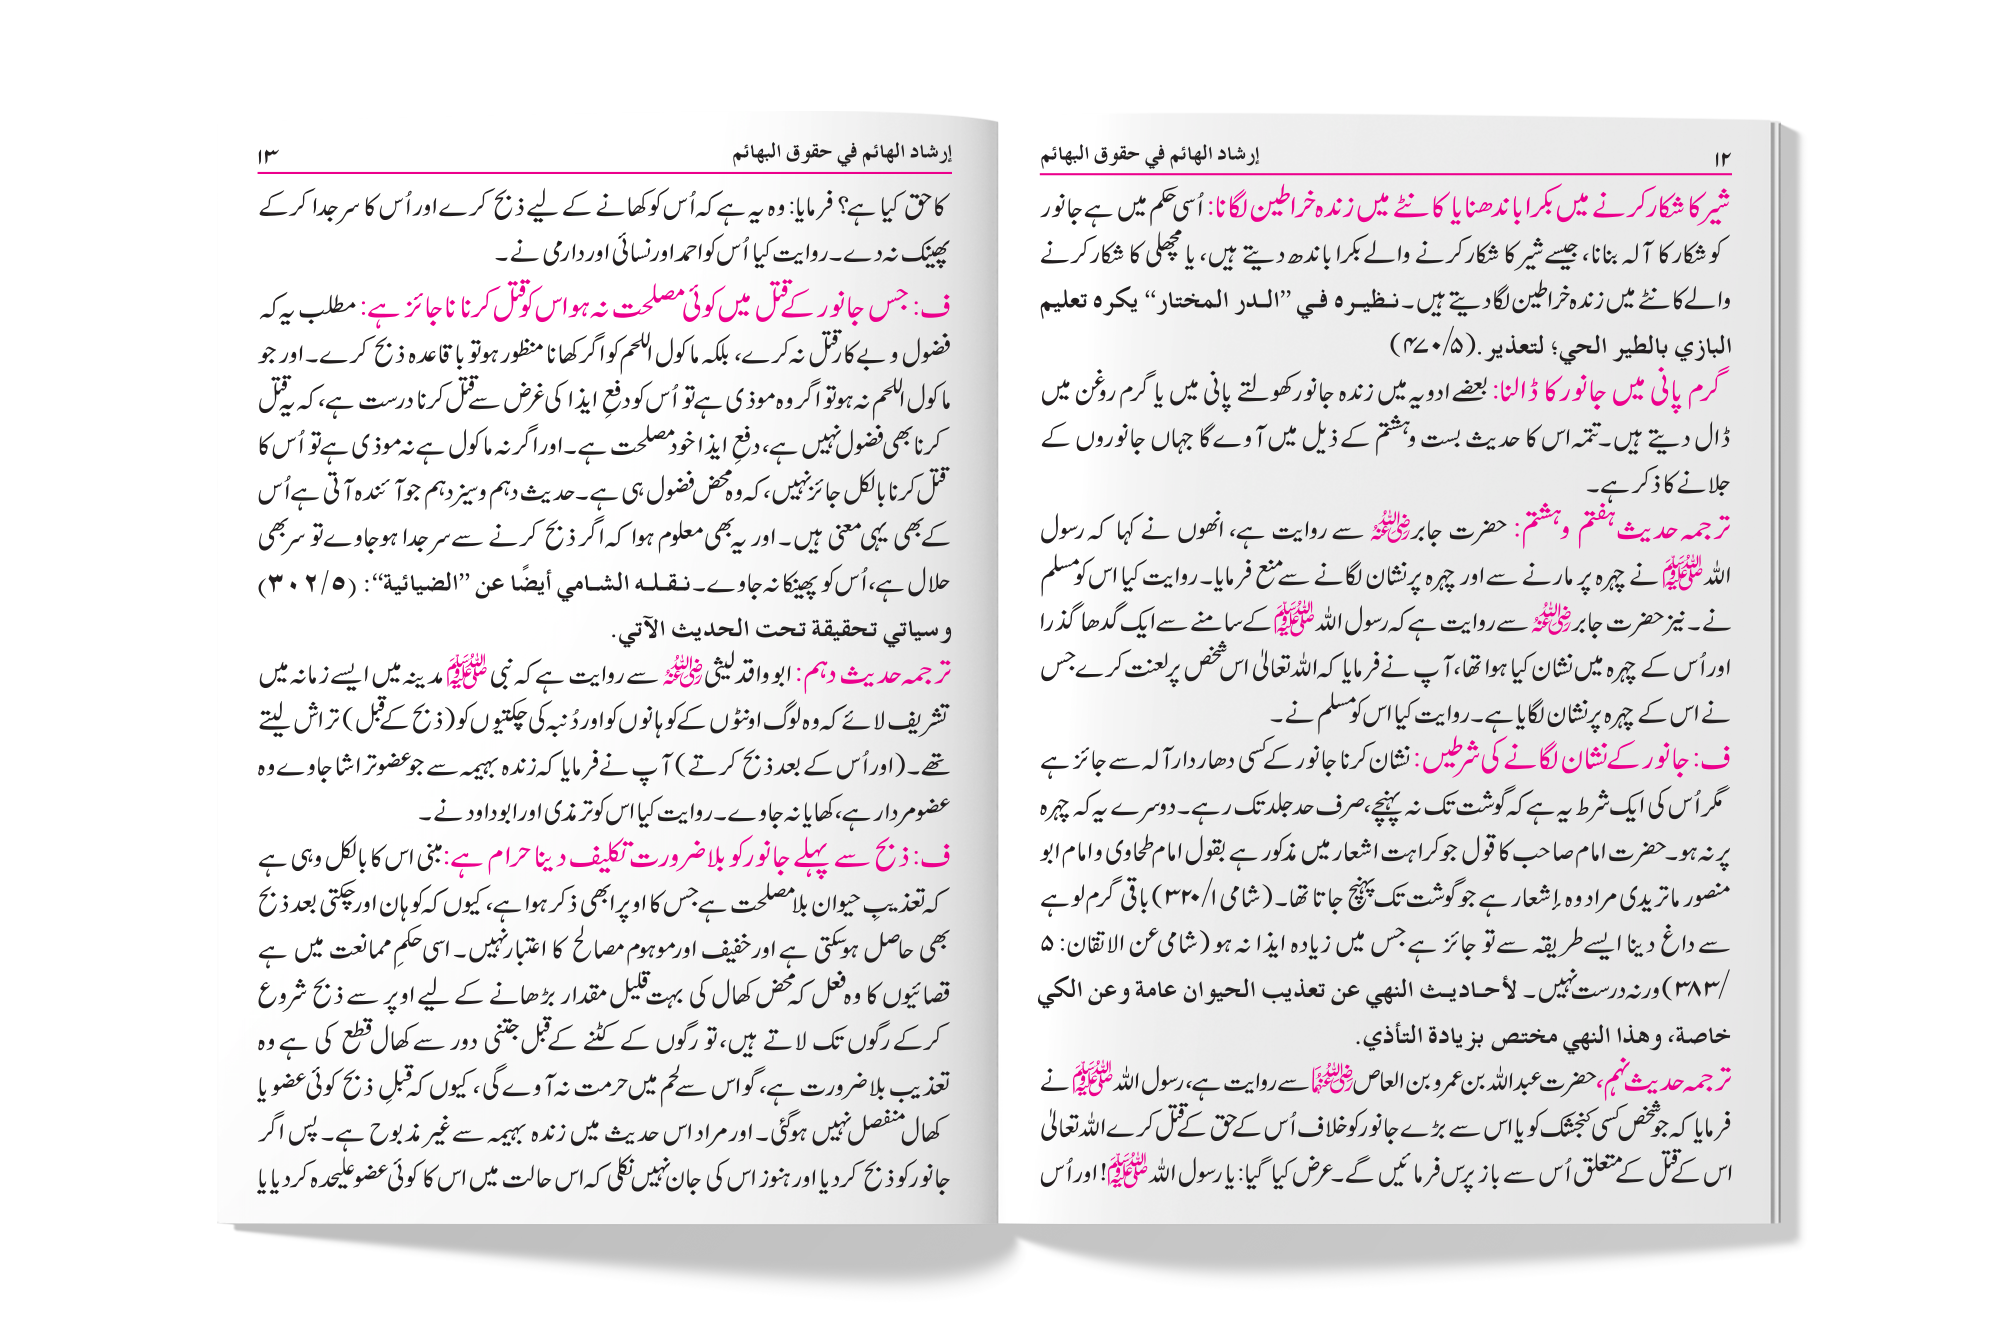 ۱۲ إرشاد الهائم في حقوق البهائم
شیر کا شکار کرنے میں بکرا باندھنا یا کانٹے میں زندہ خراطین لگانا: اُسی حکم میں ہے جانور
کو شکار کا آلہ بنانا، جیسے شیر کا شکار کرنے والے بکرا باندھ دیتے ہیں، یا مچھلی کا شکار کرنے
والے کانٹے میں زندہ خراطین لگا دیتے ہیں۔ نـظـيـره فـي ”الـدر المختار“ يكره تعليم
البازي بالطير الحي؛ لتعذير .(۵/۴۷۰)
گرم پانی میں جانور کا ڈالنا: بعضے ادویہ میں زندہ جانور کھولتے پانی میں یا گرم روغن میں
ڈال دیتے ہیں۔ تتمہ اس کا حدیث بست وہشتم کے ذیل میں آوے گا جہاں جانوروں کے
جلانے کا ذکر ہے۔
ترجمہ حدیث ہفتم وہشتم: حضرت جابر رضی اللہ عنہ سے روایت ہے، انھوں نے کہا کہ رسول
اللہ ﷺ نے چہرہ پر مارنے سے اور چہرہ پر نشان لگانے سے منع فرمایا۔ روایت کیا اس کو مسلم
نے۔ نیز حضرت جابر رضی اللہ عنہ سے روایت ہے کہ رسول اللہ ﷺ کے سامنے سے ایک گدھا گذرا
اور اُس کے چہرہ میں نشان کیا ہوا تھا، آپ نے فرمایا کہ اللہ تعالیٰ اس شخص پر لعنت کرے جس
نے اس کے چہرہ پر نشان لگایا ہے۔ روایت کیا اس کو مسلم نے۔
ف: جانور کے نشان لگانے کی شرطیں: نشان کرنا جانور کے کسی دھاردار آلہ سے جائز ہے
مگر اُس کی ایک شرط یہ ہے کہ گوشت تک نہ پہنچے، صرف حد جلد تک رہے۔ دوسرے یہ کہ چہرہ
پر نہ ہو۔ حضرت امام صاحب کا قول جو کراہت اشعار میں مذکور ہے بقول امام طحاوی و امام ابو
منصور ماتریدی مراد وہ إشعار ہے جو گوشت تک پہنچ جاتا تھا۔ (شامی ۱/۳۲۰) باقی گرم لوہے
سے داغ دینا ایسے طریقہ سے تو جائز ہے جس میں زیادہ ایذا نہ ہو (شامی عن الاتقان: ۵
/۳۸۳) ورنہ درست نہیں۔ لأحـاديـث النهي عن تعذيب الحيوان عامة وعن الكي
خاصة، وهذا النهي مختص بزيادة التأذي.
ترجمہ حدیث نہم، حضرت عبداللہ بن عمرو بن العاص رضی اللہ عنہما سے روایت ہے، رسول اللہ ﷺ نے
فرمایا کہ جو شخص کسی کنجشک کو یا اس سے بڑے جانور کو خلاف اُس کے حق کے قتل کرے اللہ تعالیٰ
اس کے قتل کے متعلق اُس سے باز پرس فرمائیں گے۔ عرض کیا گیا: یا رسول اللہ ﷺ! اور اُس
إرشاد الهائم في حقوق البهائم ۱۳
کا حق کیا ہے؟ فرمایا: وہ یہ ہے کہ اُس کو کھانے کے لیے ذبح کرے اور اُس کا سر جدا کر کے
پھینک نہ دے۔ روایت کیا اُس کو احمد اور نسائی اور دارمی نے۔
ف: جس جانور کے قتل میں کوئی مصلحت نہ ہو اس کو قتل کرنا ناجائز ہے: مطلب یہ کہ
فضول و بے کار قتل نہ کرے، بلکہ ماکول اللحم کو اگر کھانا منظور ہو تو باقاعدہ ذبح کرے۔ اور جو
ماکول اللحم نہ ہو تو اگر وہ موذی ہے تو اُس کو دفعِ ایذا کی غرض سے قتل کرنا درست ہے، کہ یہ قتل
کرنا بھی فضول نہیں ہے، دفعِ ایذا خود مصلحت ہے۔ اور اگر نہ ماکول ہے نہ موذی ہے تو اُس کا
قتل کرنا بالکل جائز نہیں، کہ وہ محض فضول ہی ہے۔ حدیث دہم و سیزدہم جو آئندہ آتی ہے اُس
کے بھی یہی معنی ہیں۔ اور یہ بھی معلوم ہوا کہ اگر ذبح کرنے سے سر جدا ہو جاوے تو سر بھی
حلال ہے، اُس کو پھینکا نہ جاوے۔ نـقـلـه الشـامي أيضًا عن ”الضيائية“: (۵/۳۰۲)
وسياتي تحقيقة تحت الحديث الآتي.
ترجمہ حدیث دہم: ابو واقد لیثی رضی اللہ عنہ سے روایت ہے کہ نبی ﷺ مدینہ میں ایسے زمانہ میں
تشریف لائے کہ وہ لوگ اونٹوں کے کوہانوں کو اور دُنبہ کی چکتیوں کو (ذبح کے قبل) تراش لیتے
تھے۔ (اور اُس کے بعد ذبح کرتے) آپ نے فرمایا کہ زندہ بہیمہ سے جو عضو تراشا جاوے وہ
عضو مردار ہے، کھایا نہ جاوے۔ روایت کیا اس کو ترمذی اور ابوداود نے۔
ف: ذبح سے پہلے جانور کو بلاضرورت تکلیف دینا حرام ہے: مبنی اس کا بالکل وہی ہے
کہ تعذیبِ حیوان بلا مصلحت ہے جس کا اوپر ابھی ذکر ہوا ہے، کیوں کہ کوہان اور چکتی بعد ذبح
بھی حاصل ہوسکتی ہے اور خفیف اور موہوم مصالح کا اعتبار نہیں۔ اسی حکمِ ممانعت میں ہے
قصائیوں کا وہ فعل کہ محض کھال کی بہت قلیل مقدار بڑھانے کے لیے اوپر سے ذبح شروع
کر کے رگوں تک لاتے ہیں، تو رگوں کے کٹنے کے قبل جتنی دور سے کھال قطع کی ہے وہ
تعذیب بلاضرورت ہے، گو اس سے لحم میں حرمت نہ آوے گی، کیوں کہ قبلِ ذبح کوئی عضو یا
کھال منفصل نہیں ہوگئی۔ اور مراد اس حدیث میں زندہ بہیمہ سے غیر مذبوح ہے۔ پس اگر
جانور کو ذبح کردیا اور ہنوز اس کی جان نہیں نکلی کہ اس حالت میں اس کا کوئی عضو علیحدہ کردیا یا